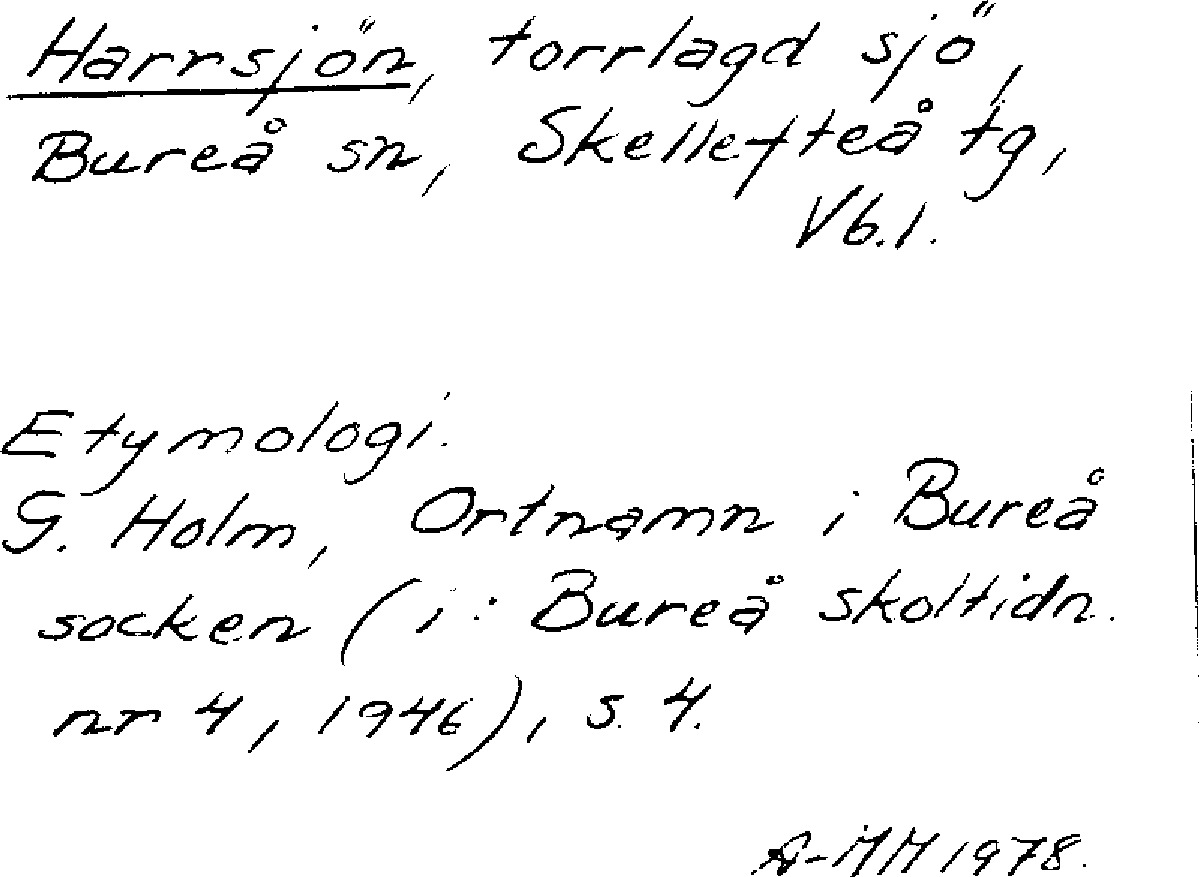 Harrsjön, torrlagd sjö,
Bureå sn, Skellefteå tg,
Vb.l.
Etymologi.
G. Holm, Ortnamn i Bureå
socken (i: Bureå skoltidn.
nr 4, 1946), s. 4.
A-MM 1978.